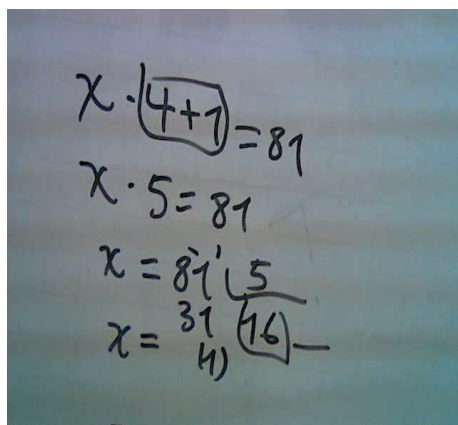 x · 4+1 = 81
x · 5 = 81
x = 81 5
x = 31 16
(1)